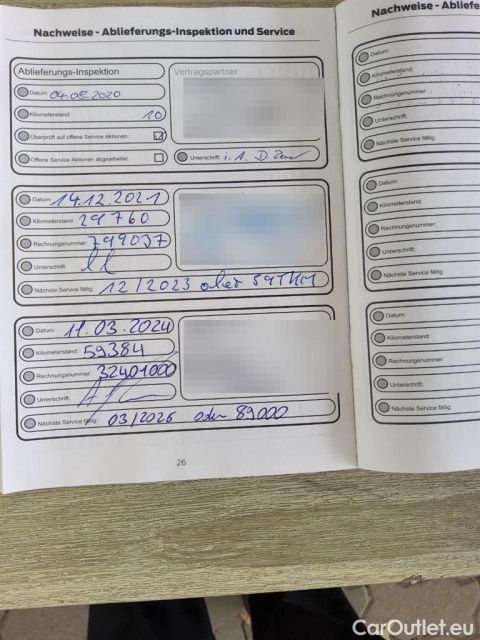 Nachweise - Ablieferungs-Inspektion und Service
Ablieferungs-Inspektion
Vertragspartner
Datum: 04.05.2020
Kilometerstand: 10
Überprüft auf offene Service Aktionen:
Offene Service Aktionen abgearbeitet:
Unterschrift: i. A. D.
Datum: 14.12.2021
Kilometerstand: 29760
Rechnungsnummer: 799037
Unterschrift:
Nächste Service fällig: 12/2023 oder 59TKM
Datum: 11.03.2024
Kilometerstand: 59384
Rechnungsnummer: 32401000
Unterschrift:
Nächste Service fällig: 03/2026 oder 89000
26
Nachweise - Abliefe
Datum:
Kilometerstand:
Rechnungsnummer:
Unterschrift:
Nächste Service fällig:
Datum:
Kilometerstand:
Rechnungsnummer:
Unterschrift:
Nächste Service fällig:
Datum:
Kilometerstand:
Rechnungsnummer:
Unterschrift:
Nächste Service fällig:
CarOutlet.eu